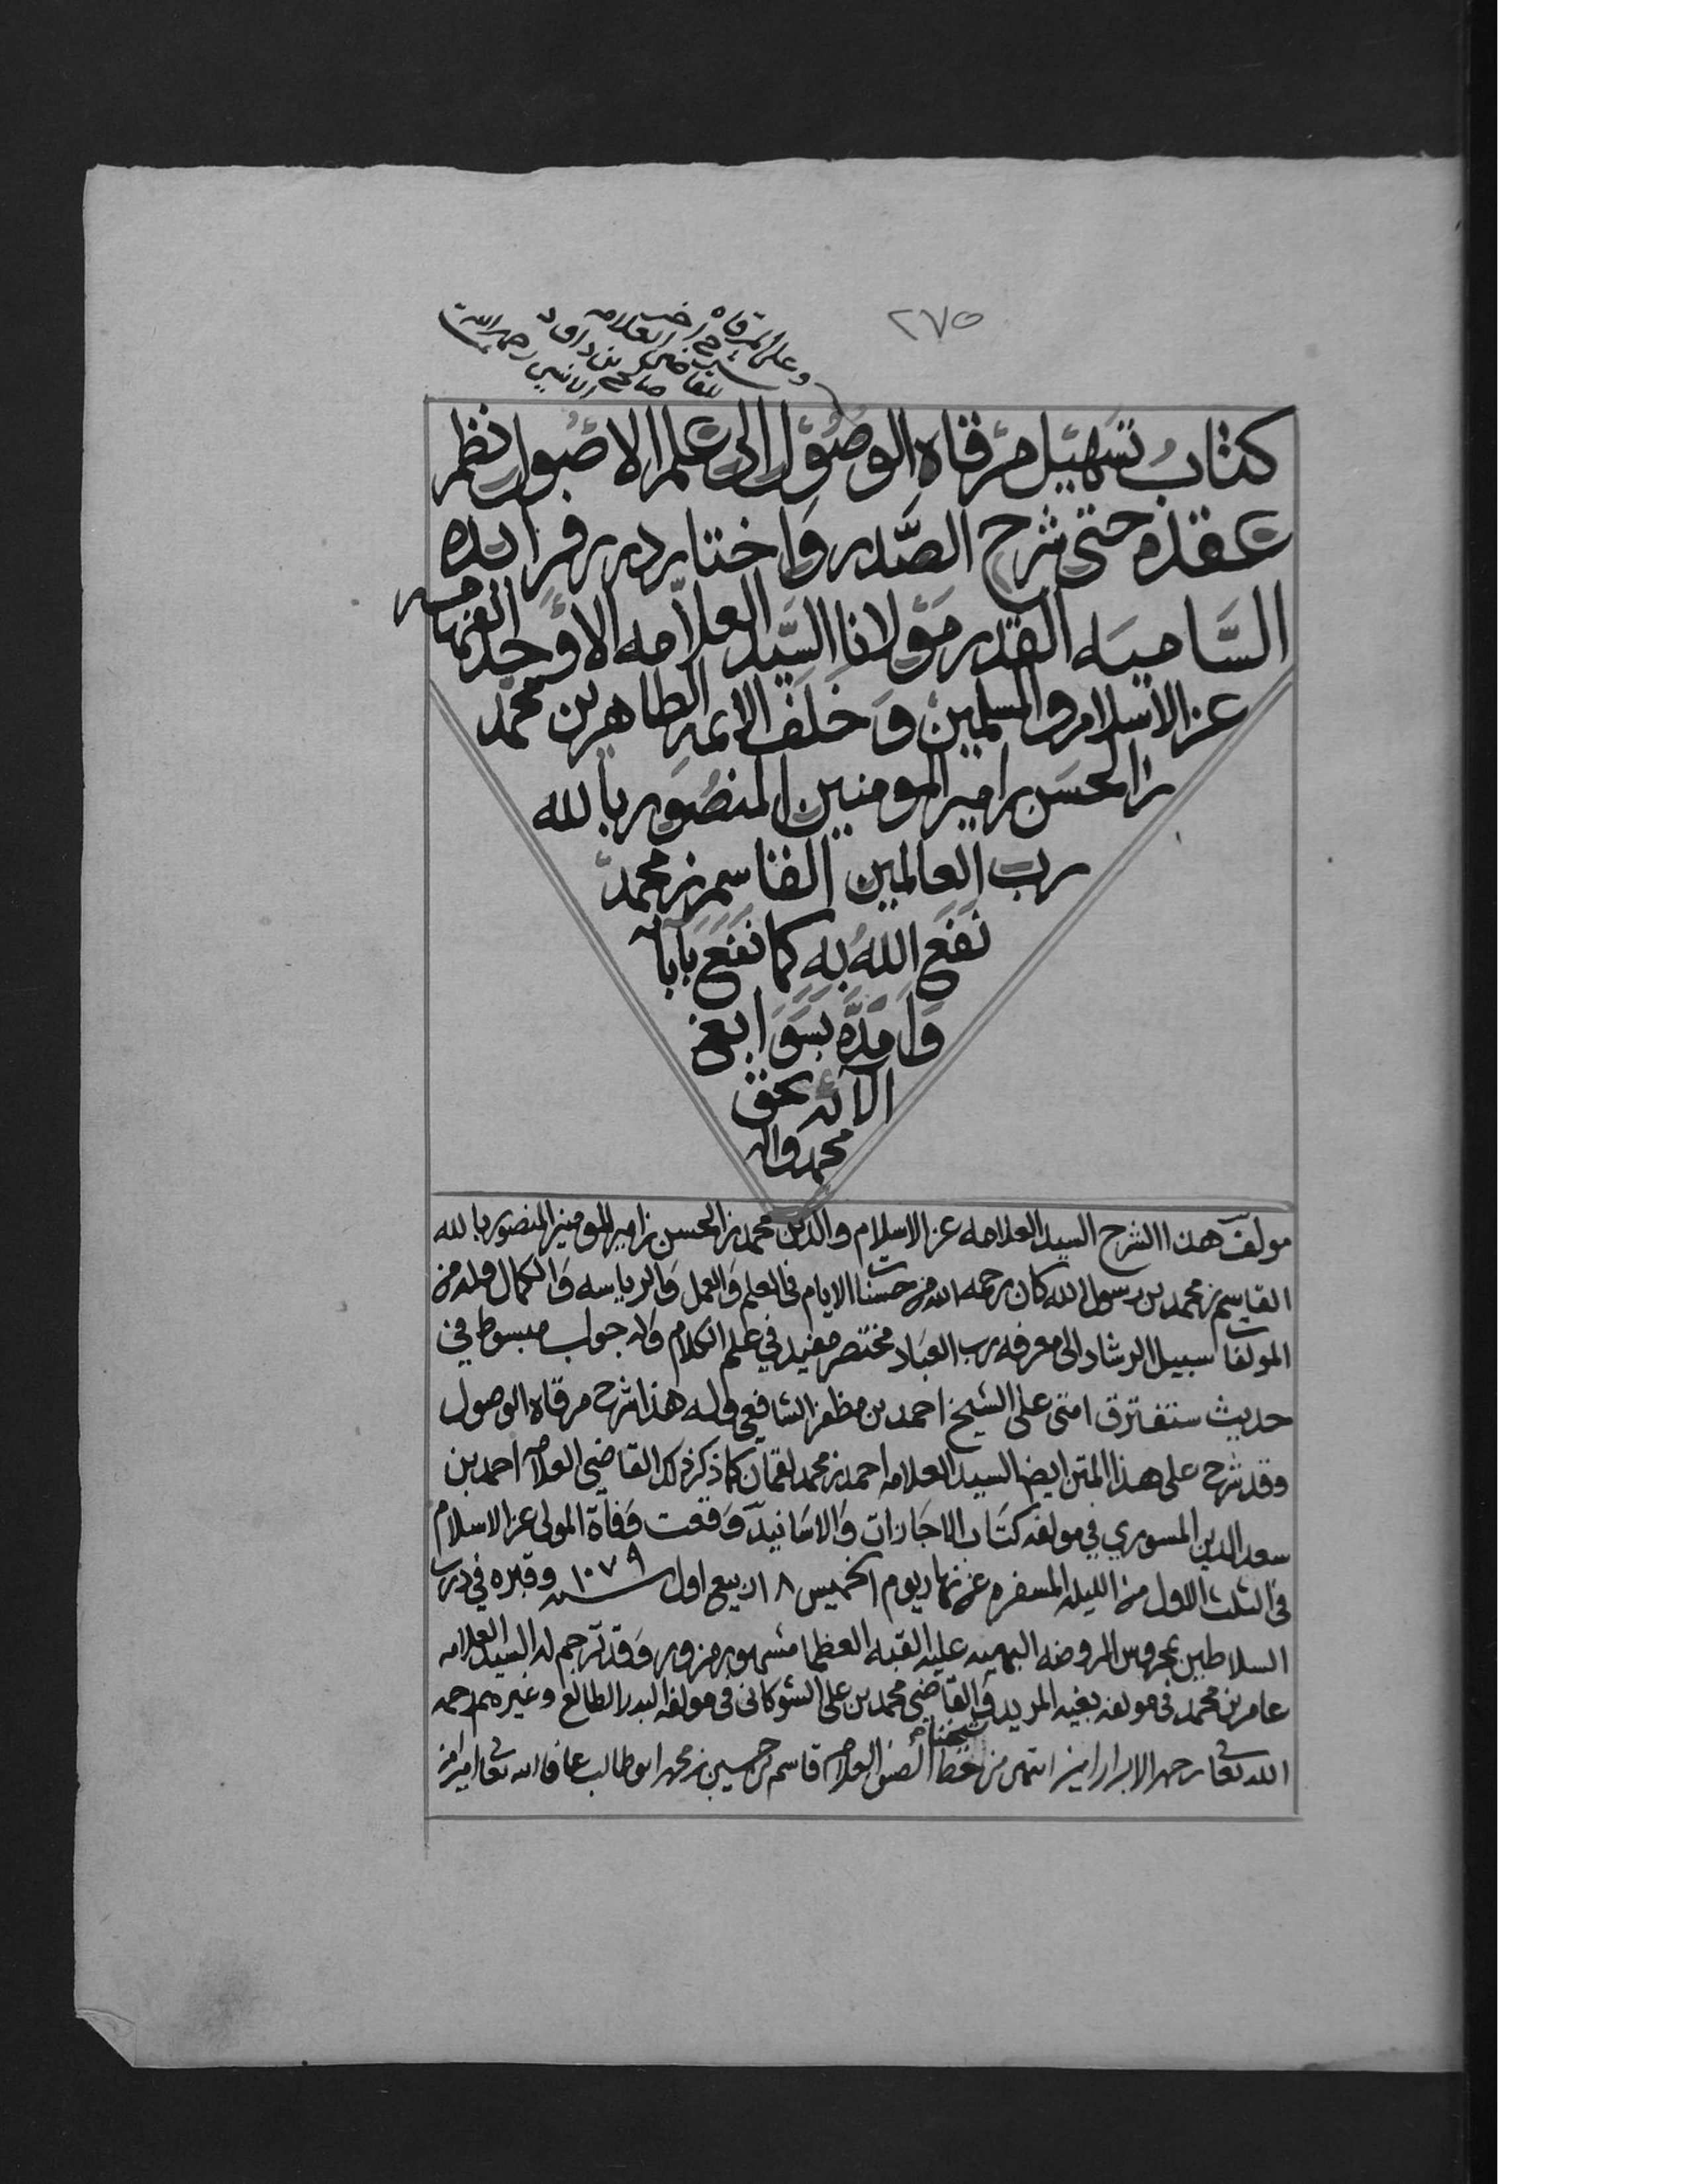 ٢٧٥
وعلى المرقاه
شرح اخر
للقاضي العلامه
صالح بن داود
الانسي رحمه الله
كتاب تسهيل مرقاه الوصول الى علم الاصول نظم
عقده حتى شرح الصدر واختار درر فرايده
الساميه القدر مولانا السيد العلامه الاوحد الفهامه
عز الاسلام والمسلمين وخلف الايمه الطاهرين محمد
بن الحسن بن امير المومنين المنصور بالله
رب العالمين القاسم بن محمد
نفع الله به كما نفع بآبآئه
وامده بسوابغ
الآئه بحق
محمد واله
مولف هذا الشرح السيد العلامه عز الاسلام والدين محمد بن الحسن بن امير المومنين المنصور بالله
القاسم بن محمد بن رسول الله كان رحمه الله من حسنات الايام في العلم والعمل والرياسه والكمال وله من
المولفات سبيل الرشاد الى معرفه رب العباد مختصر مفيد في علم الكلام وله جواب مبسوط في
حديث ستفترق امتي على الشيخ احمد بن مظفر الشافعي وله هذا شرح مرقاه الوصول
وقد شرح على هذا المتن ايضا السيد العلامه احمد بن محمد لقمان كما ذكر ذلك القاضي العلامه احمد بن
سعد الدين المسوري في مولفه كتاب الاجازات والاسانيد ووقعت وفاة المولى عز الاسلام
في الثلث الاول من الليله المسفره عن نهار يوم الخميس ١٨ ربيع اول سنه ١٠٧٩ وقبره في درب
السلاطين بمحروس الروضه البهيه عليه القبه العظما مشهور مزور وقد ترجم له السيد العلامه
عامر بن محمد في مولفه بغيه المريد والقاضي محمد بن علي الشوكاني في مولفه البدر الطالع وغيرهم رحمه
الله تعالى رحمه الابرار امين انتهى من خط شيخنا الصفي العلامه قاسم بن حسين بن محمد ابو طالب عافاه الله تعالى امين